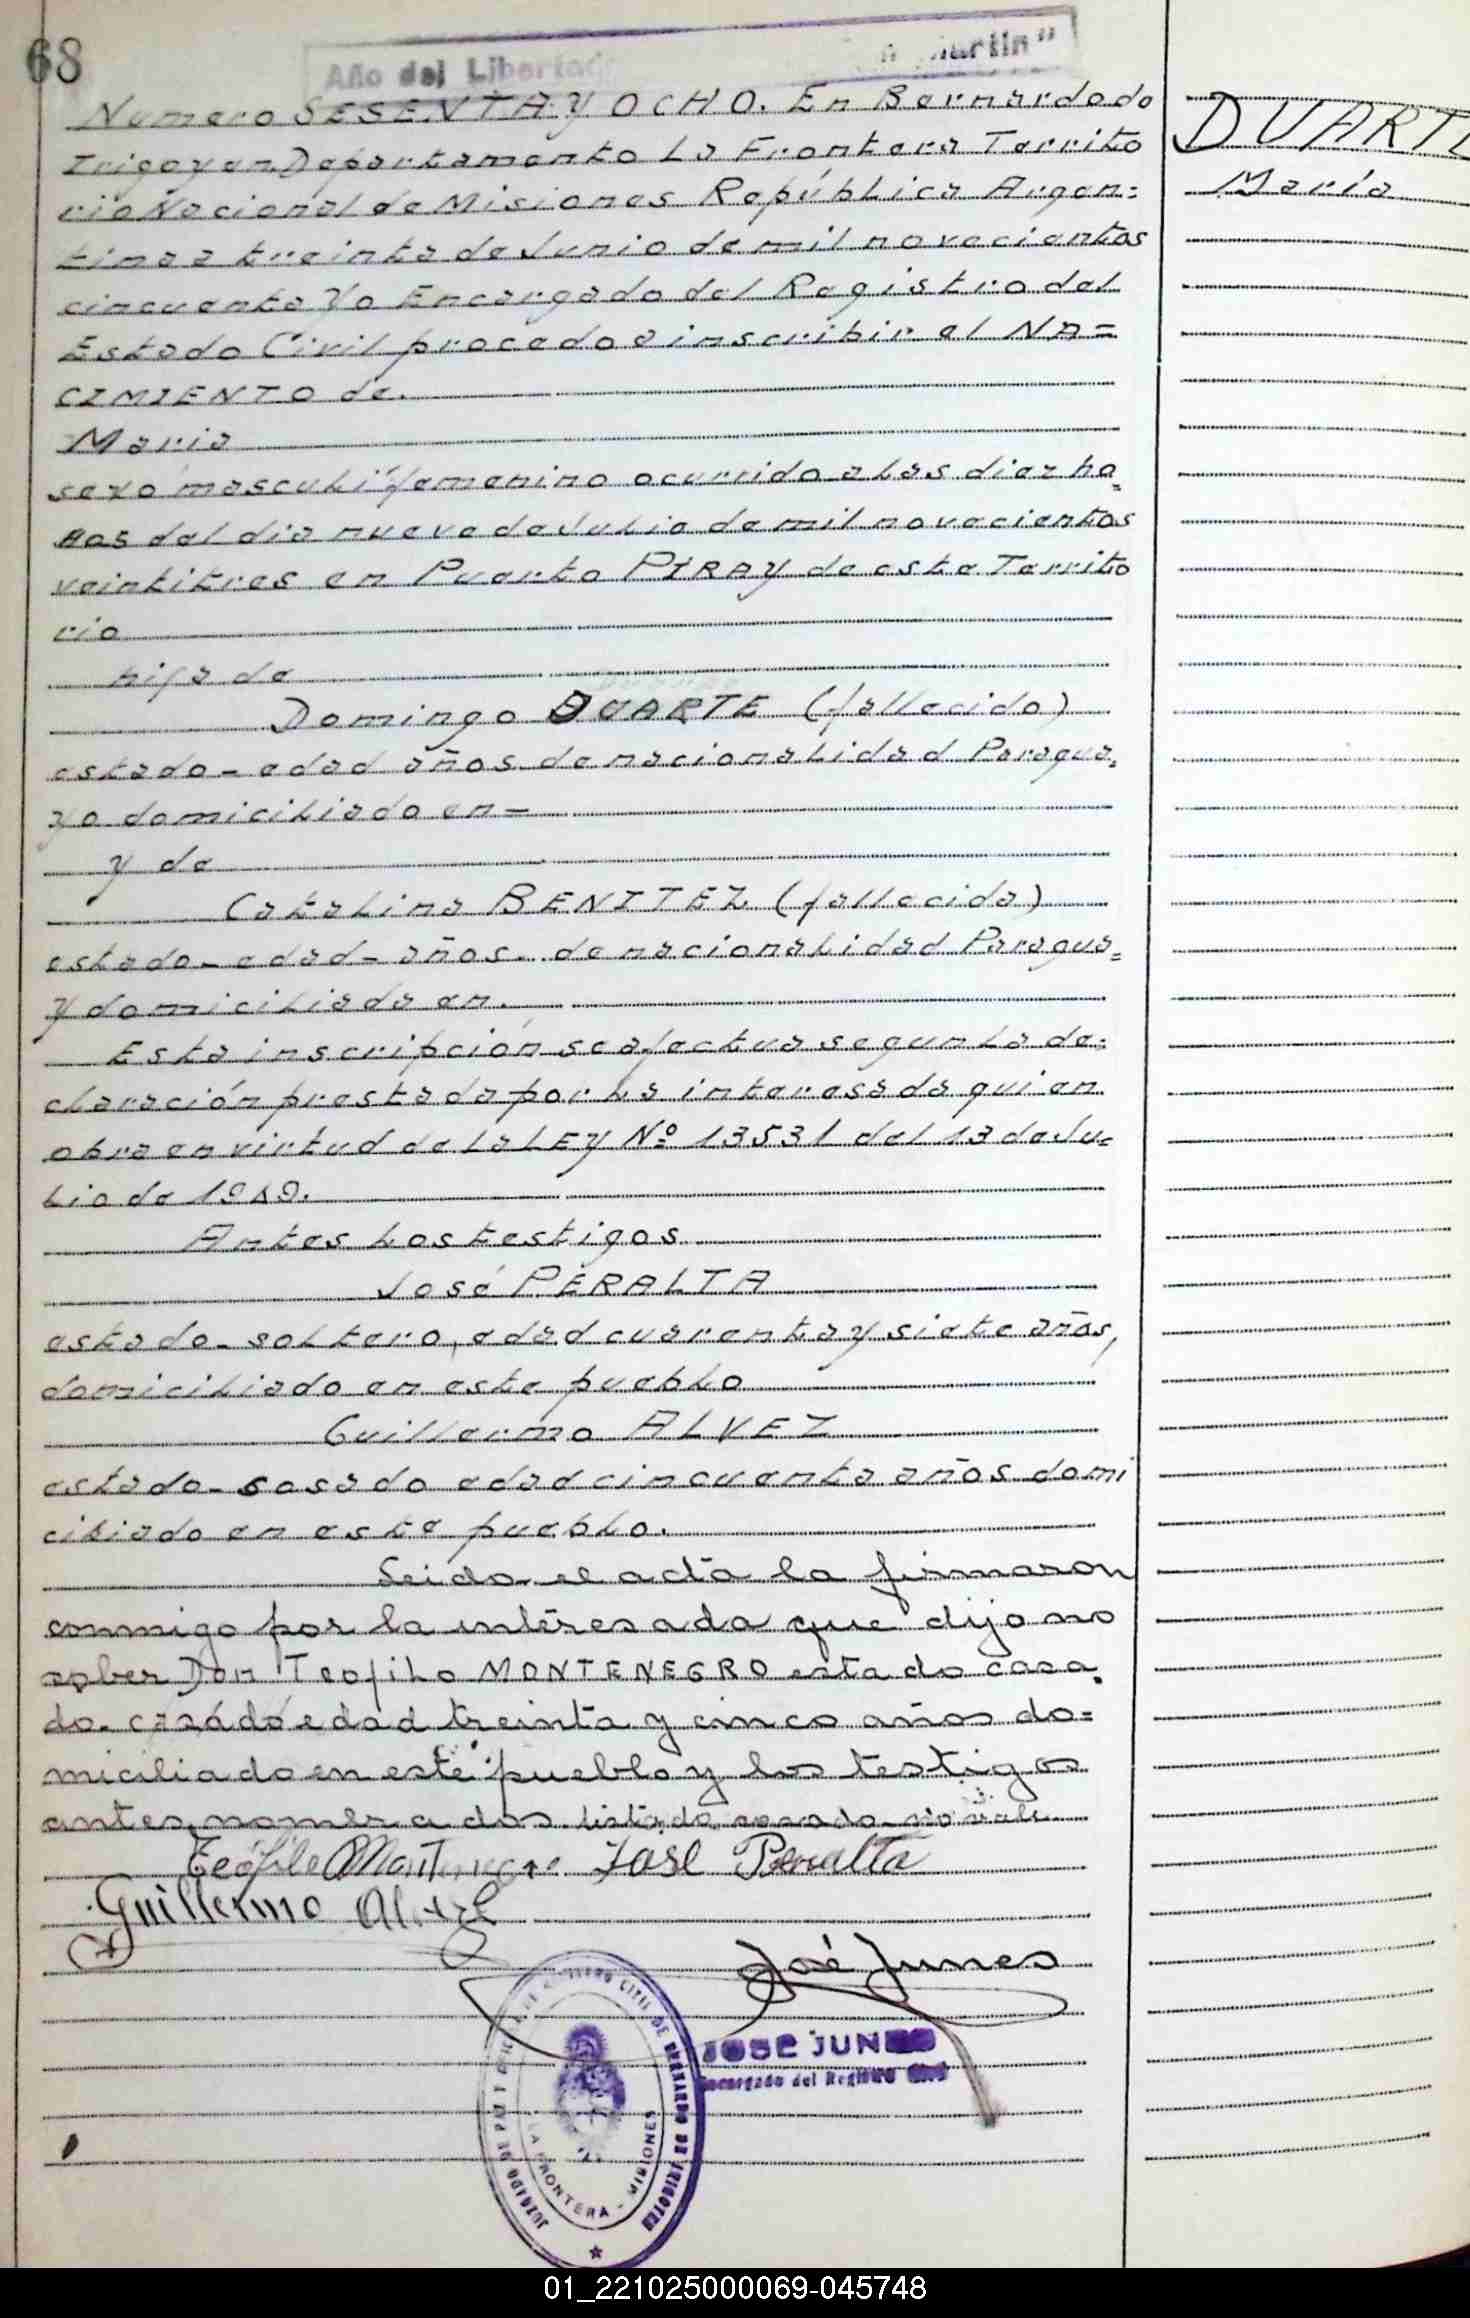 68
Año del Libertad
artin"
Numero SESENTA Y OCHO. En Bernardo do
Irigoyen. Departamento La Frontera Territo
rio Nacional de Misiones República Argen=
tina a treinta de Junio de mil novecientos
cincuenta Yo Encargado del Registro del
Estado Civil procedo a inscribir el NA=
CIMIENTO de.
Maria
sexo masculi femenino ocurrido a las diez ho=
ras del dia nueve de Julio de mil novecientos
veintitres en Puerto PIRAY de este Territo
rio
hija de
Domingo DUARTE (fallecido)
estado - edad años de nacionalidad Paragua=
yo domiciliado en -
y de
Catalina BENITEZ (fallecida)
estado - edad - años. de nacionalidad Paragua=
y domiciliada en.
Esta inscripción se afectua segun la de=
claración prestada por la interesada quien
obra en virtud de la LEY Nº 13531 del 13 de Ju=
lio de 1949.
Antes los testigos
José PERALTA
estado - soltero, edad cuarenta y siete años,
domiciliado en este pueblo
Guillermo ALVEZ
estado - casado edad cincuenta años domi
ciliado en este pueblo.
Leido el acta la firmaron
conmigo por la interesada que dijo no
saber Don Teofilo MONTENEGRO estado casa=
do - casádo edad treinta y cinco años do=
miciliado en este pueblo y los testigos
antes nombrados. casado - no vale
Teófilo Montenegro José Peralta
Guillermo Alvez
José Junes
JOSE JUNES
Encargado del Registro Civil
JUZGADO DE PAZ Y REGISTRO CIVIL DE BERNARDO DE IRIGOYEN
LA FRONTERA - MISIONES
DUARTE
María
01_221025000069-045748